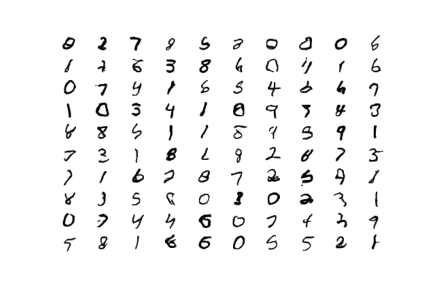 0 2 7 8 5 2 0 0 0 6
1 2 6 3 8 6 0 4 1 6
0 7 4 1 6 5 4 6 4 7
1 0 3 4 1 0 9 3 4 3
8 8 5 1 1 8 9 3 9 1
7 3 1 8 2 8 2 8 7 3
7 1 6 2 8 7 2 5 9 1
8 3 5 8 0 1 0 2 3 1
0 7 4 4 6 0 7 4 3 9
5 8 1 6 6 0 5 5 2 1